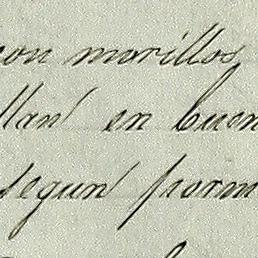 con morillos
llan en buen
segun porm